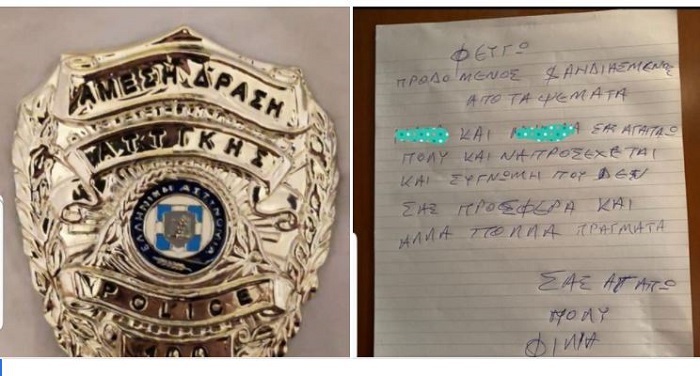 ΑΜΕΣΗ ΔΡΑΣΗ
ΑΤΤΙΚΗΣ
ΕΛΛΗΝΙΚΗ ΑΣΤΥΝΟΜΙΑ
POLICE
ΦΕΥΓΩ
ΠΡΟΔΟΜΕΝΟΣ & ΑΗΔΙΑΣΜΕΝΟΣ
ΑΠΟ ΤΑ ΨΕΜΑΤΑ
ΚΑΙ ΣΑΣ ΑΓΑΠΑΩ
ΠΟΛΥ ΚΑΙ ΝΑ ΠΡΟΣΕΧΕΤΑΙ
ΚΑΙ ΣΥΓΝΩΜΗ ΠΟΥ ΔΕΝ
ΣΑΣ ΠΡΟΣΦΕΡΑ ΚΑΙ
ΑΛΛΑ ΠΟΛΛΑ ΠΡΑΓΜΑΤΑ
ΣΑΣ ΑΓΑΠΩ
ΠΟΛΥ
ΦΙΛΙΑ